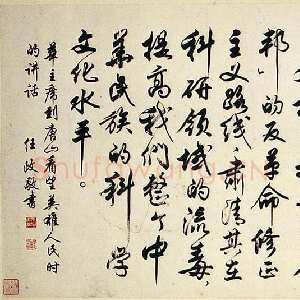 邦”的反革命修正
主义路线，肃清其在
科研领域的流毒，
提高我们整个中
华民族的科学
文化水平。
华主席到唐山看望英雄人民时
的讲话
任政敬书